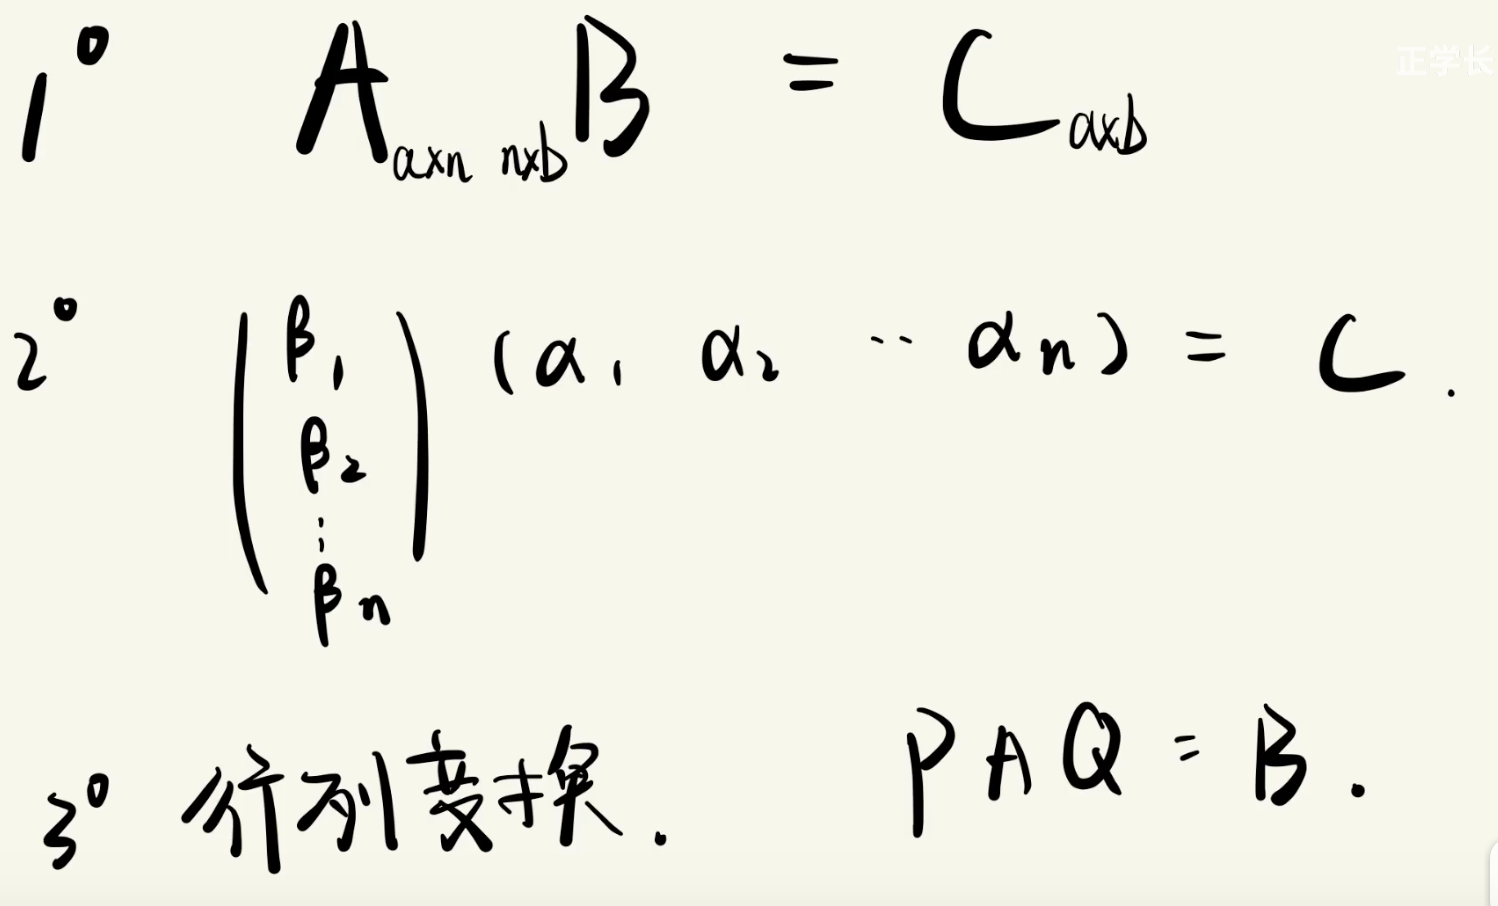 1° A_{a×n} _{n×b}B = C_{a×b}
正学长
2° (β₁ β₂ ⋮ βₙ) (α₁ α₂ ·· αₙ) = C.
3° 行列变换. PAQ = B.